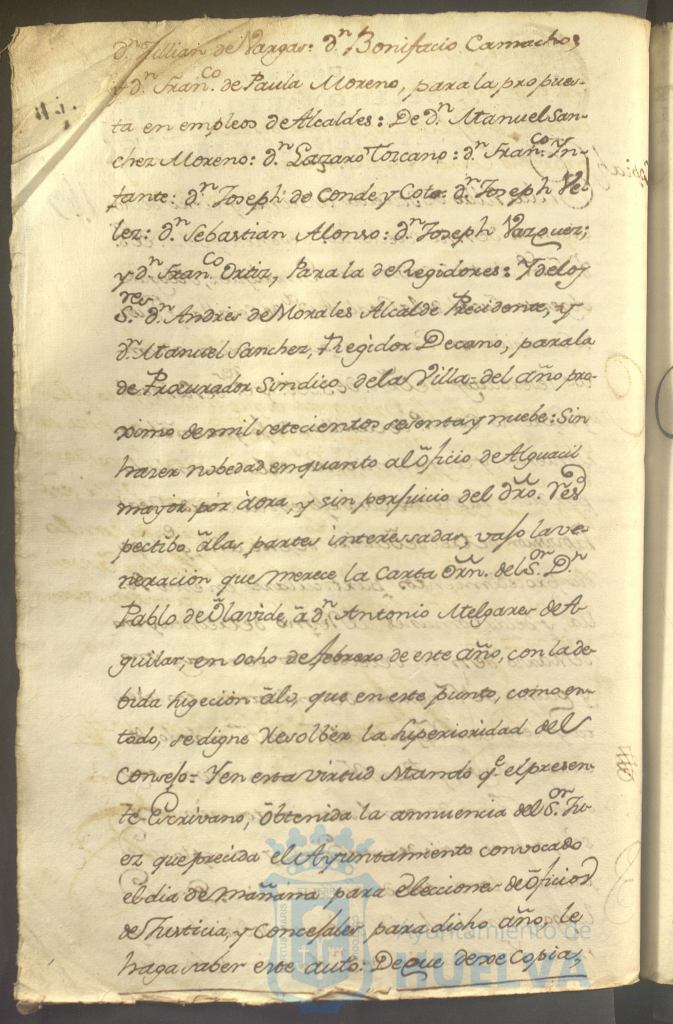 d.ⁿ Jillian de Vargas: d.ⁿ Bonifacio Camacho;
y d.ⁿ Fran.ᶜᵒ de Paula Moreno, para la propues-
ta en empleos de Alcaldes: De d.ⁿ Manuel San-
chez Moreno: d.ⁿ Lazaro Toscano: d.ⁿ Fran.ᶜᵒ In-
fante: d.ⁿ Joseph de Conde y Coto: d.ⁿ Joseph Ve-
lez: d.ⁿ Sebastian Alonso: d.ⁿ Joseph Vazquez;
y d.ⁿ Fran.ᶜᵒ Ortiz, Para la de Regidores: Y de los
S.ʳᵉˢ d.ⁿ Andres de Morales Alcalde Precidente, y
d.ⁿ Manuel Sanchez, Regidor Decano, para la
de Procurador Sindico de la Villa = del año pro-
ximo de mil setecientos sesenta y nuebe: Sin
hazer nobedad en quanto al oficio de Alguacil
mayor por aora, y sin perjuicio del dro. Res-
pectibo a las partes interessadas, vajo la ve-
neracion que merece la Carta orn. del S.ᵒʳ D.ⁿ
Pablo de Olavide, a d.ⁿ Antonio Melgares de A-
guilar, en ocho de febrero de este año, con la de-
bida sugecion a lo que en este punto, como en
todo, se digne Resolber la superioridad del
Consejo = Y en esta virtud Mando q.ᵉ el presen-
te Escrivano, obtenida la annuencia del S.ᵒʳ Ju-
ez que precida el Ayuntamiento convocado
el dia de mañana para elecciones de oficios
de Justicia, y Concejales para dicho año, le
haga saber este auto: De que dexe Copia,
Ayuntamiento de
HUELVA